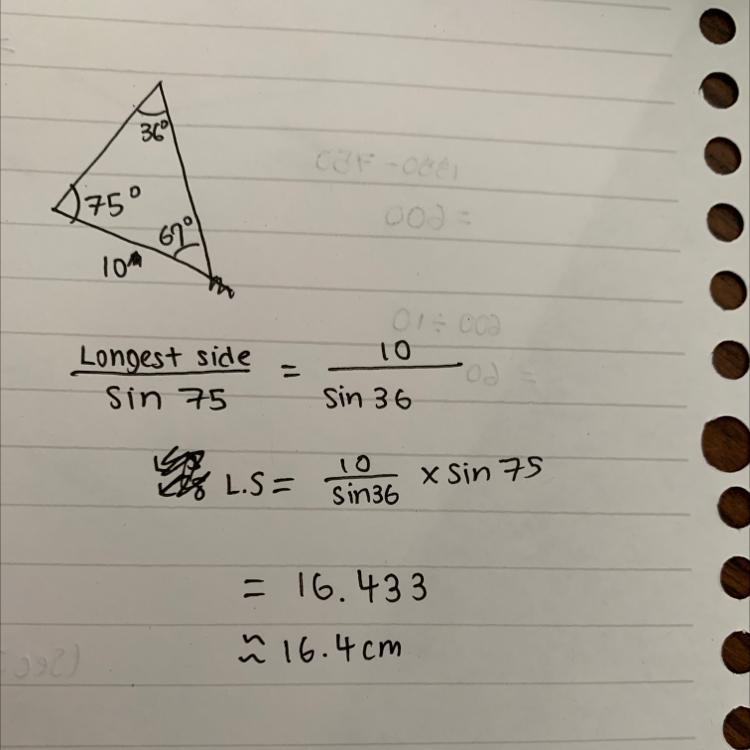 36°
75°
69°
10
Longest side / Sin 75 = 10 / Sin 36
L.S = 10 / Sin36 × Sin 75
= 16.433
≈ 16.4cm